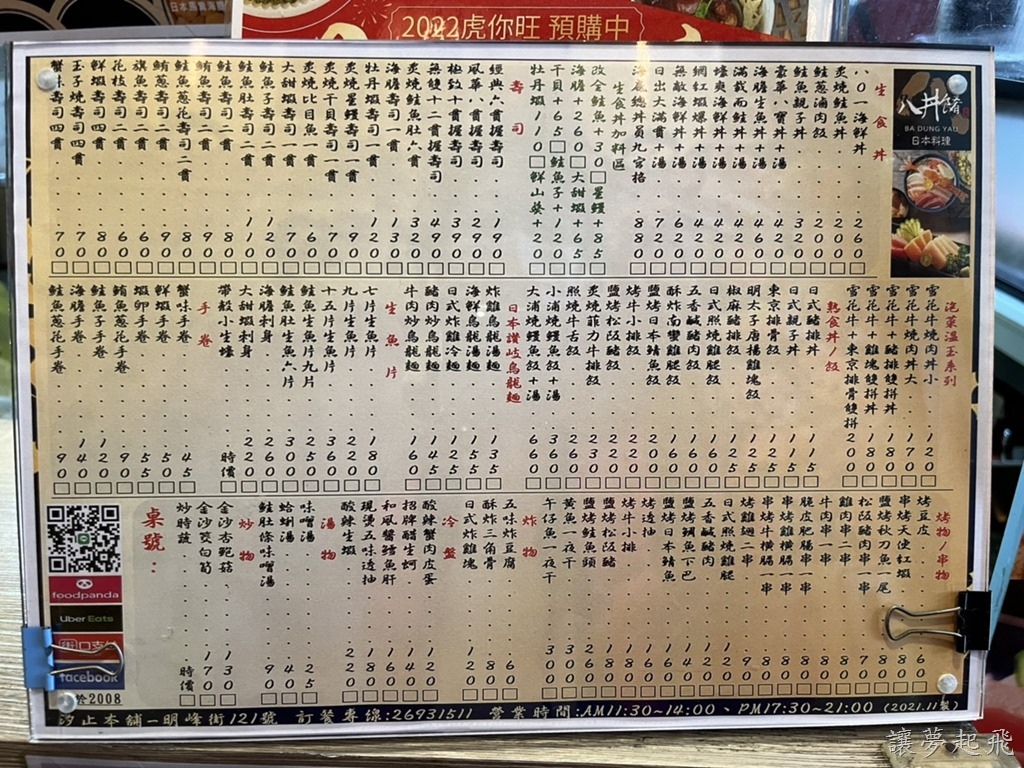 2022虎你旺 預購中
八井肴
BA DUNG YAU
日本料理
生食丼
炙燒鮭魚丼 200
鮭魚親子丼 320
豪華八寶丼+湯 420
海膽生魚丼+湯 460
滿載而鮭丼+湯 420
蠔爽海鮮丼+湯 420
網紅蝦爆丼+湯 420
無敵海鮮丼+湯 620
日出大滿貫+湯 720
生食丼加料區
改全鮭魚+30 星鰻+85
海膽+260 大甜蝦+65
干貝+65 鮭魚子+120
牡丹蝦110 鮮山葵+20
壽司
經典六貫握壽司 190
風華八貫握壽司 290
極致十貫握壽司 390
無雙十二貫握壽司 490
炙燒鮭魚肚六貫 320
海膽壽司一貫 130
牡丹蝦壽司一貫 120
炙燒星鰻壽司一貫 90
炙燒干貝壽司一貫 70
炙燒比目魚一貫 60
大甜蝦壽司一貫 70
鮭魚子壽司二貫 120
鮭魚肚壽司二貫 110
鮭魚壽司二貫 80
鮪魚壽司二貫 90
鮭魚蔥花壽司二貫 80
鮪魚壽司二貫 90
旗魚壽司二貫 60
花枝壽司二貫 60
鮮蝦壽司四貫 80
玉子壽司四貫 70
蟹味壽司四貫 70
泡菜溫玉系列
雪花牛燒肉丼小 120
雪花牛燒肉丼大 170
雪花牛+豬排雙拼丼 180
雪花牛+雞塊雙拼丼 180
雪花牛+東京排骨雙拼 200
熟食丼/飯
日式豬排丼 115
日式親子丼 115
東京排骨飯
明太子唐揚雞塊飯
椒麻豬排飯 125
五香鹹豬肉飯 160
日式照燒雞腿飯 160
酥炸南蠻雞腿飯 160
鹽烤日本鯖魚飯 200
烤牛小排飯
鹽烤松阪豬飯 220
炙燒菲力牛排飯 230
照燒牛舌飯 260
小浦燒鰻魚飯+湯 360
大浦燒鰻魚飯+湯 660
日本讚岐烏龍麵
炸雞烏龍湯麵 135
海鮮烏龍湯麵 155
日式炸雞冷麵 125
豬肉炒烏龍麵 145
牛肉炒烏龍麵 160
生魚片
七片生魚片 180
九片生魚片 220
十五片生魚片 360
鮭魚生魚片九片 250
鮭魚肚生魚六片 300
海膽刺身 260
大甜蝦刺身 220
帶殼小生蠔 時價
手卷
蟹味手卷 45
鮮蝦手卷 50
蝦卵手卷 55
鮪魚手卷 90
鮭魚子手卷 120
海膽手卷 140
鮭魚蔥花手卷 90
烤物/串物
烤豆皮 60
串烤天使紅蝦
鹽烤秋刀魚一尾 80
松阪豬肉一串 70
雞肉串一串 80
牛肉串一串 80
脆皮肥腸一串 80
串烤豬橫膈一串 80
串烤牛橫膈一串 80
烤雞翅二串 90
日式照燒雞腿 120
五香鹹豬肉 120
鹽烤鯛魚下巴 140
鹽烤日本鯖魚 160
烤透抽 160
烤牛小排 180
鹽烤松阪豬 180
鹽烤鮭魚頭 260
黃魚一夜干 300
午仔魚一夜干 300
炸物
五味炸豆腐 60
酥炸三角骨 80
日式炸雞塊 120
冷盤
酸辣蟹肉皮蛋 120
招牌醋生蚵 140
和風醬鱈魚肝 160
現燙五味透抽 180
酸辣生蝦 220
湯物
味噌湯 25
蛤蜊湯 40
鮭肚條味噌湯 90
炒物
金沙杏鮑菇 130
金沙筊白筍 170
炒時蔬 時價
桌號：
foodpanda
Uber Eats
街口支付
facebook
於2008
汐止本舖－明峰街121號 訂餐專線:26931511 營業時間:AM11:30~14:00、PM17:30~21:00 (2021.11製)
讓夢起飛